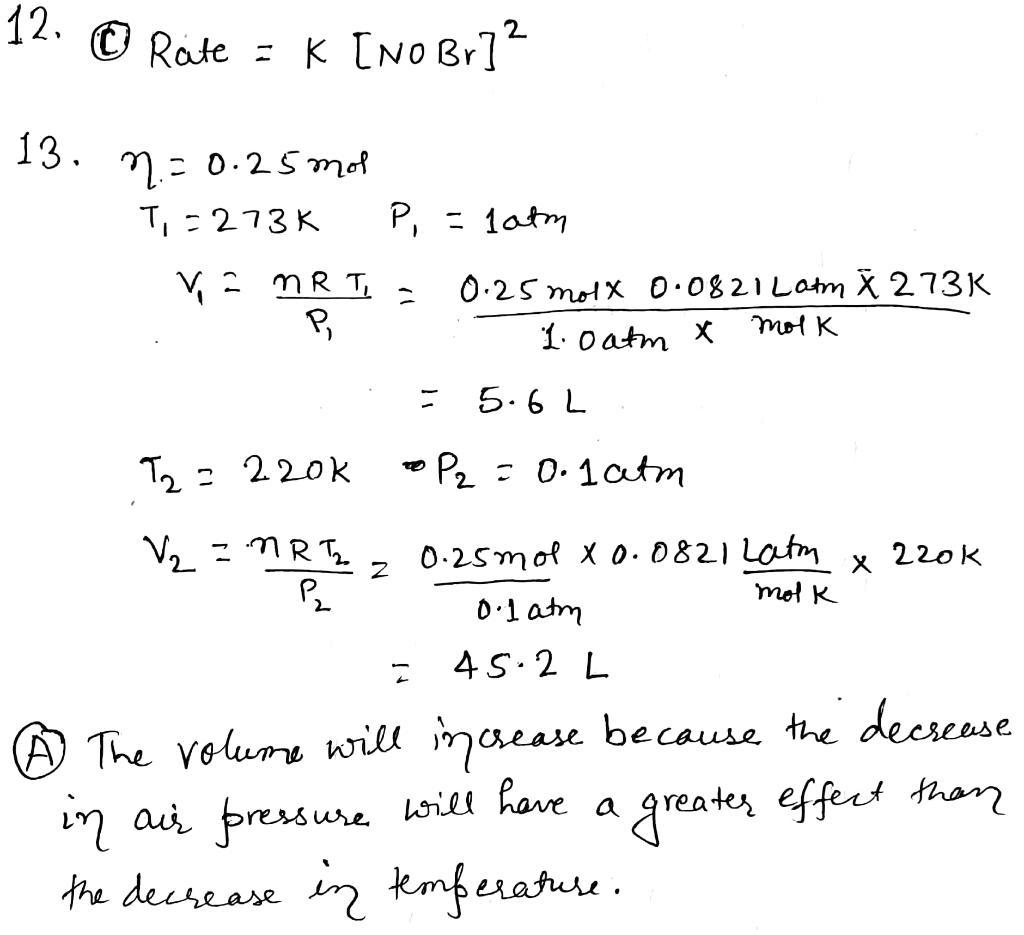 12. Ⓒ Rate = K [NOBr]²
13. n = 0.25 mol
T₁ = 273K P₁ = 1atm
V₁ = nRT₁/P₁ = 0.25 mol x 0.0821 Latm x 273K / 1.0 atm x mol K
= 5.6 L
T₂ = 220K P₂ = 0.1atm
V₂ = nRT₂/P₂ = 0.25mol x 0.0821 Latm/mol K x 220K / 0.1 atm
= 45.2 L
Ⓐ The volume will increase because the decrease
in air pressure will have a greater effect than
the decrease in temperature.